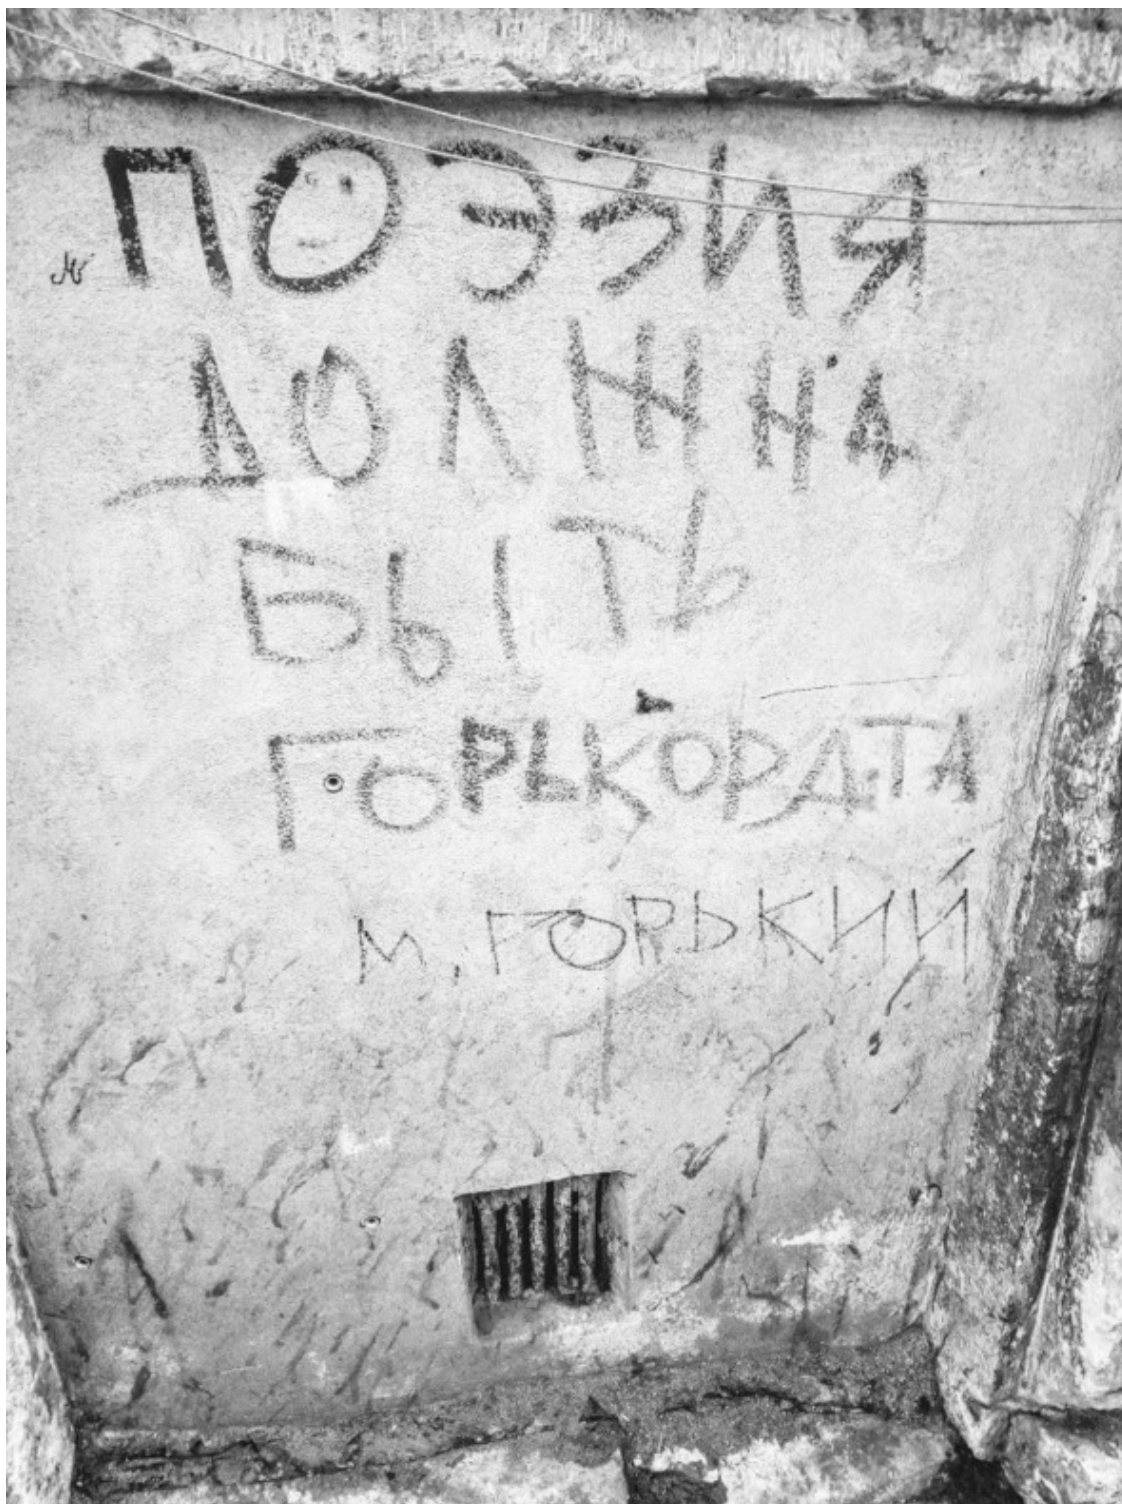 ПОЭЗИЯ
ДОЛЖНА
БЫТЬ
ГОРЬКОРДАТА
М. ГОРЬКИЙ